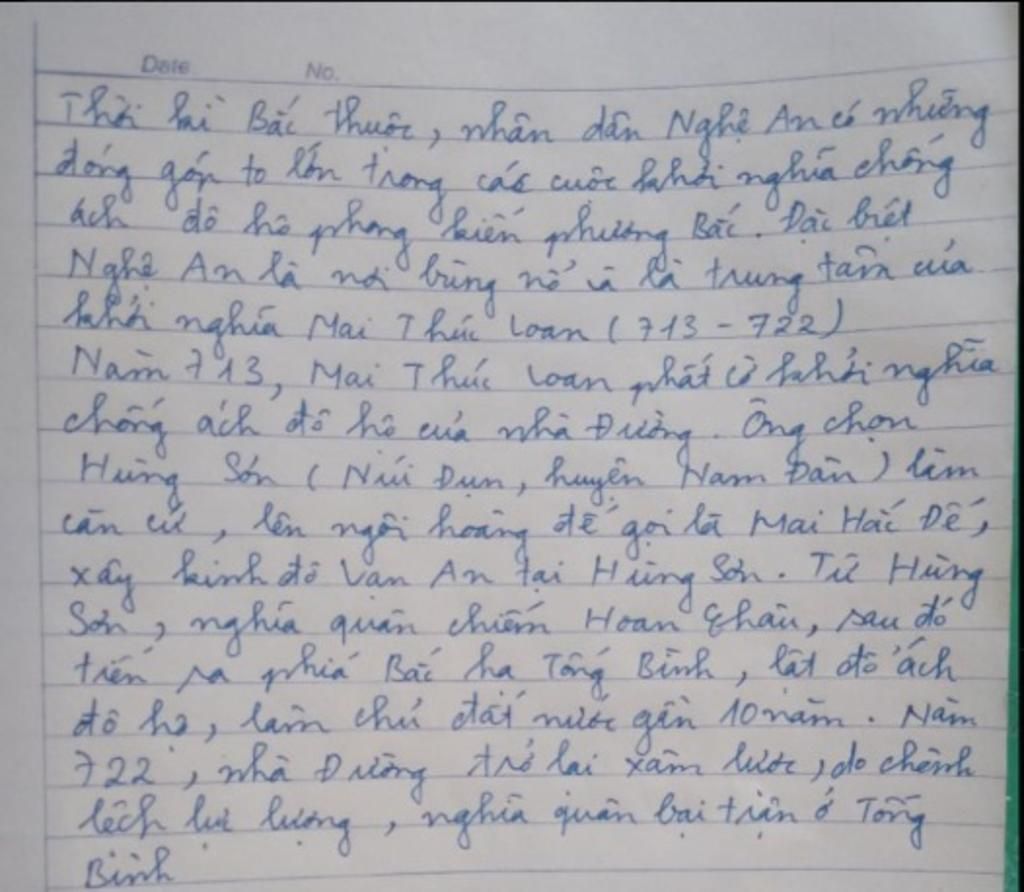 Date No.
Thời kì Bắc thuộc, nhân dân Nghệ An có những
đóng góp to lớn trong các cuộc khởi nghĩa chống
ách đô hộ phong kiến phương Bắc. Đặc biệt
Nghệ An là nơi bùng nổ và là trung tâm của
khởi nghĩa Mai Thúc Loan (713 - 722)
Năm 713, Mai Thúc Loan phất cờ khởi nghĩa
chống ách đô hộ của nhà Đường. Ông chọn
Hùng Sơn (Núi Đụn, huyện Nam Đàn) làm
căn cứ, lên ngôi hoàng đế gọi là Mai Hắc Đế,
xây kinh đô Vạn An tại Hùng Sơn. Từ Hùng
Sơn, nghĩa quân chiếm Hoan Châu, sau đó
tiến ra phía Bắc hạ Tống Bình, lật đổ ách
đô hộ, làm chủ đất nước gần 10 năm. Năm
722, nhà Đường trở lại xâm lược, do chênh
lệch lực lượng, nghĩa quân bại trận ở Tống
Bình